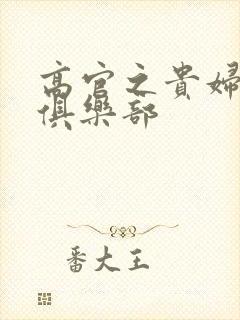 高官之貴婦
俱樂部
番大王